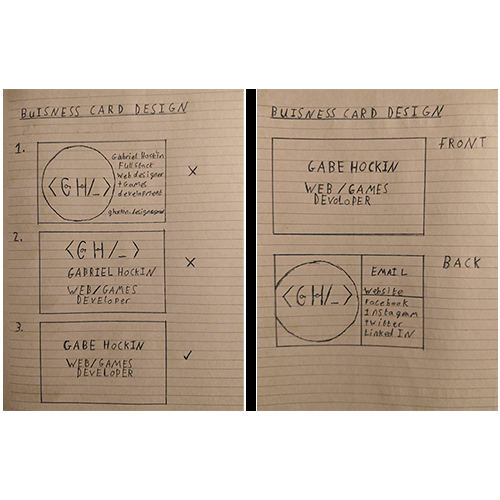 BUISNESS CARD DESIGN
1.
Gabriel Hockin
Full Stack
Web designer
+ Games
development
<GH/_>
X
2.
<GH/_>
GABRIEL HOCKIN
WEB/GAMES
DEVELOPER
X
3.
GABE HOCKIN
WEB/GAMES
DEVELOPER
✓
BUISNESS CARD DESIGN
FRONT
GABE HOCKIN
WEB/GAMES
DEVOLOPER
BACK
<GH/_>
EMAIL
Website
Facebook
Instagram
twitter
Linked IN